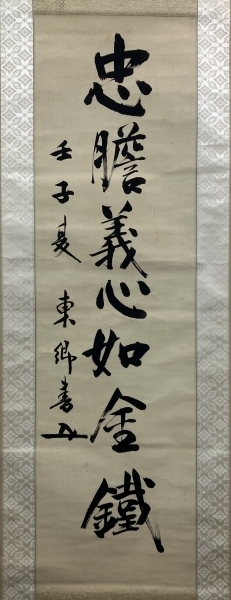 忠膽義心如金鐵
壬子夏 東鄉書